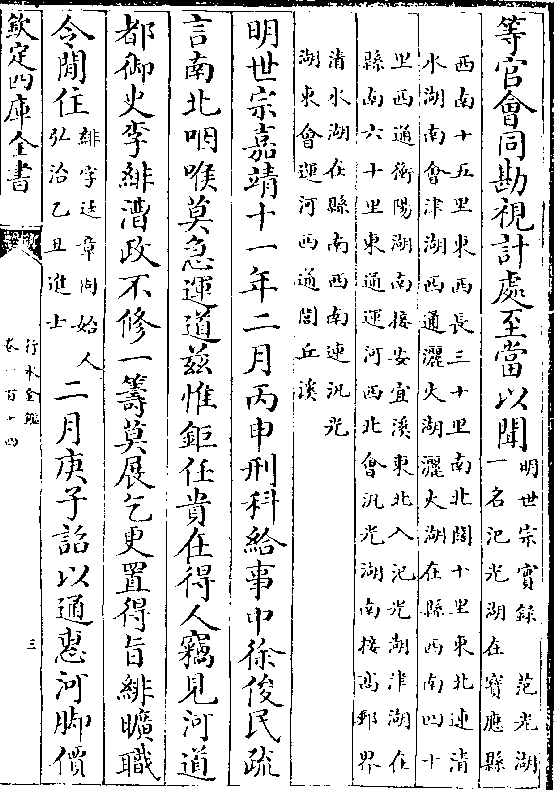 等官會同勘視計處至當以聞明世宗實錄　范光湖
一名汜光湖在寶應縣
西南十五里東西長三十里南北闊十里東北連清
水湖南會津湖西通灑火湖灑火湖在縣西南四十
里西通衡陽湖南接安宜溪東北入汜光湖津湖在
縣南六十里東通運河西北會汜光湖南接高郵界
清水湖在縣南西南連汜光
湖東會運河西通閭丘溪
明世宗嘉靖十一年二月丙申刑科給事中徐俊民疏
言南北咽喉莫急運道茲惟鉅任貴在得人竊見河道
都御史李緋漕政不修一籌莫展乞更置得旨緋曠職
令閒住緋字廷章同始人
弘治乙丑進士
二月庚子詔以通惠河脚價
欽定四庫全書
行水金鑑
卷一百十四
三